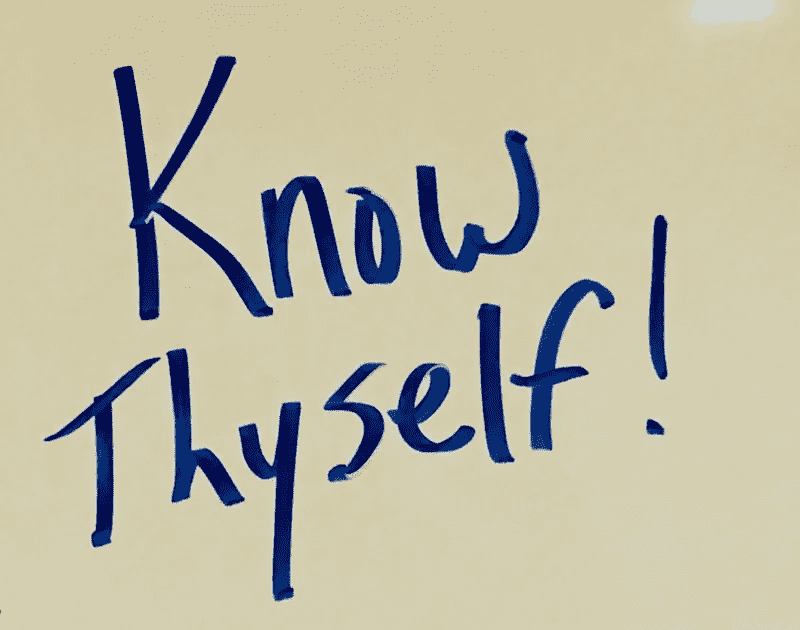 Know
Thyself!